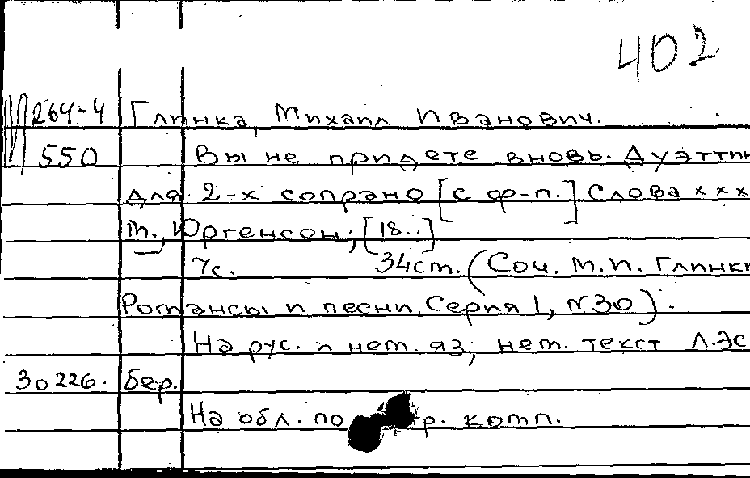 402
264-4 Глинка, Михаил Иванович.
550 Вы не придете вновь. Дуэттин
для 2-х сопрано [с ф-п.] Слова ххх
М., Юргенсон, [18..]
7с. 34см. (Соч. М.И. Глинк
Романсы и песни, Серия 1, №30).
На рус. и нем. яз, нем. текст Л. Эс
30226. бер.
На обл. по р. комп.